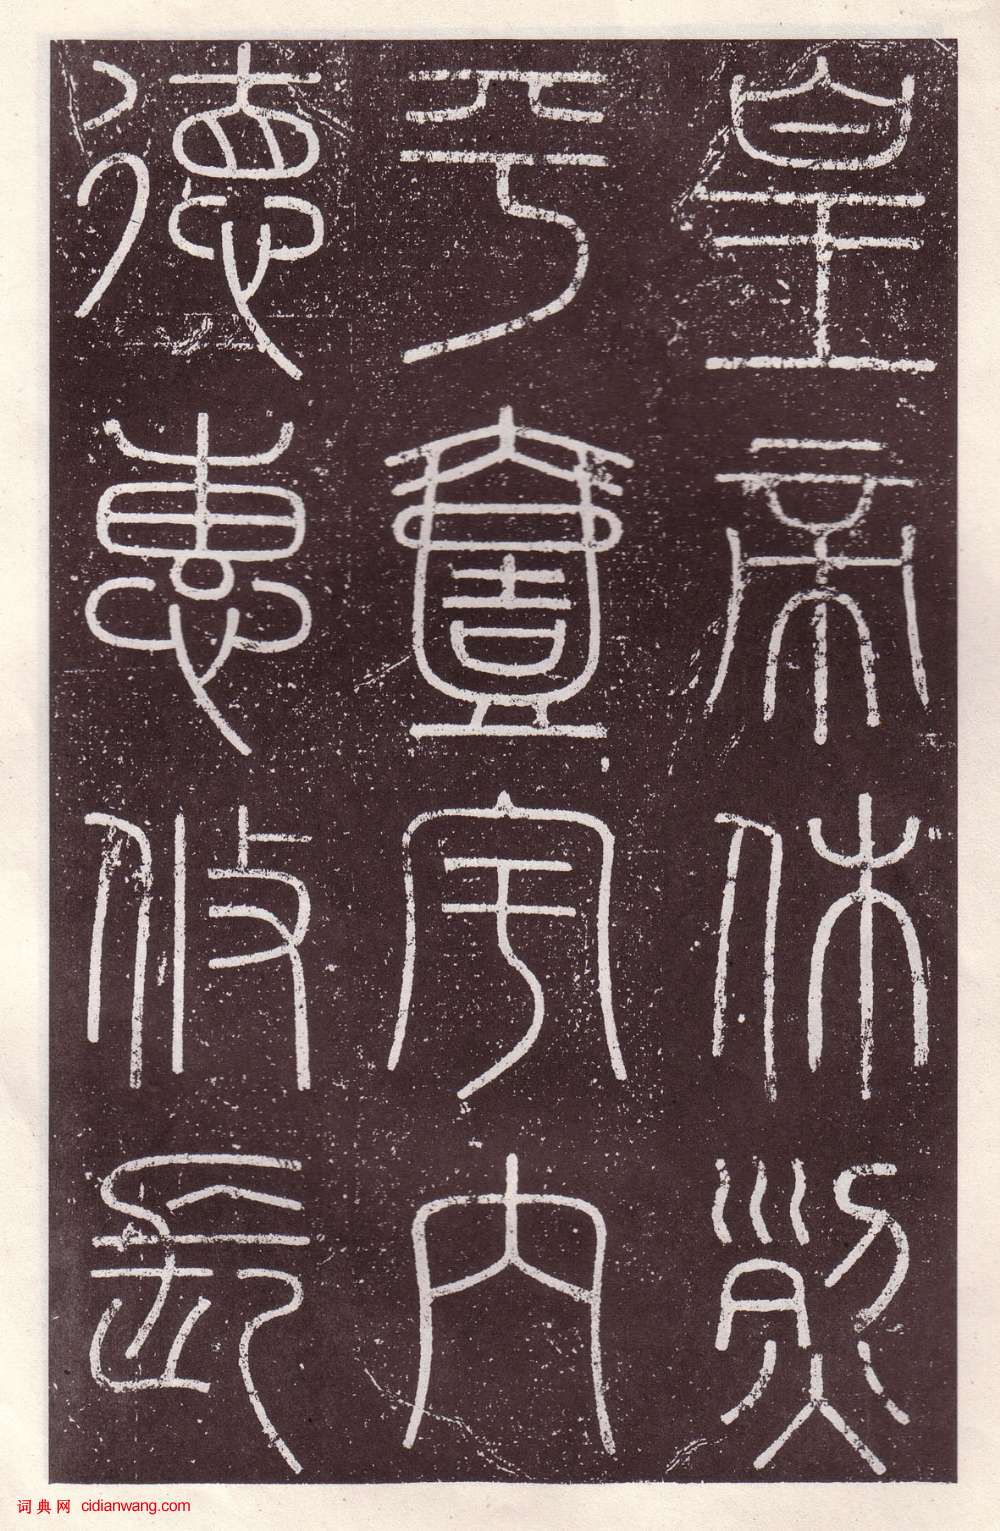 皇帝休烈
平壹宇内
德惠攸長
词典网 cidianwang.com